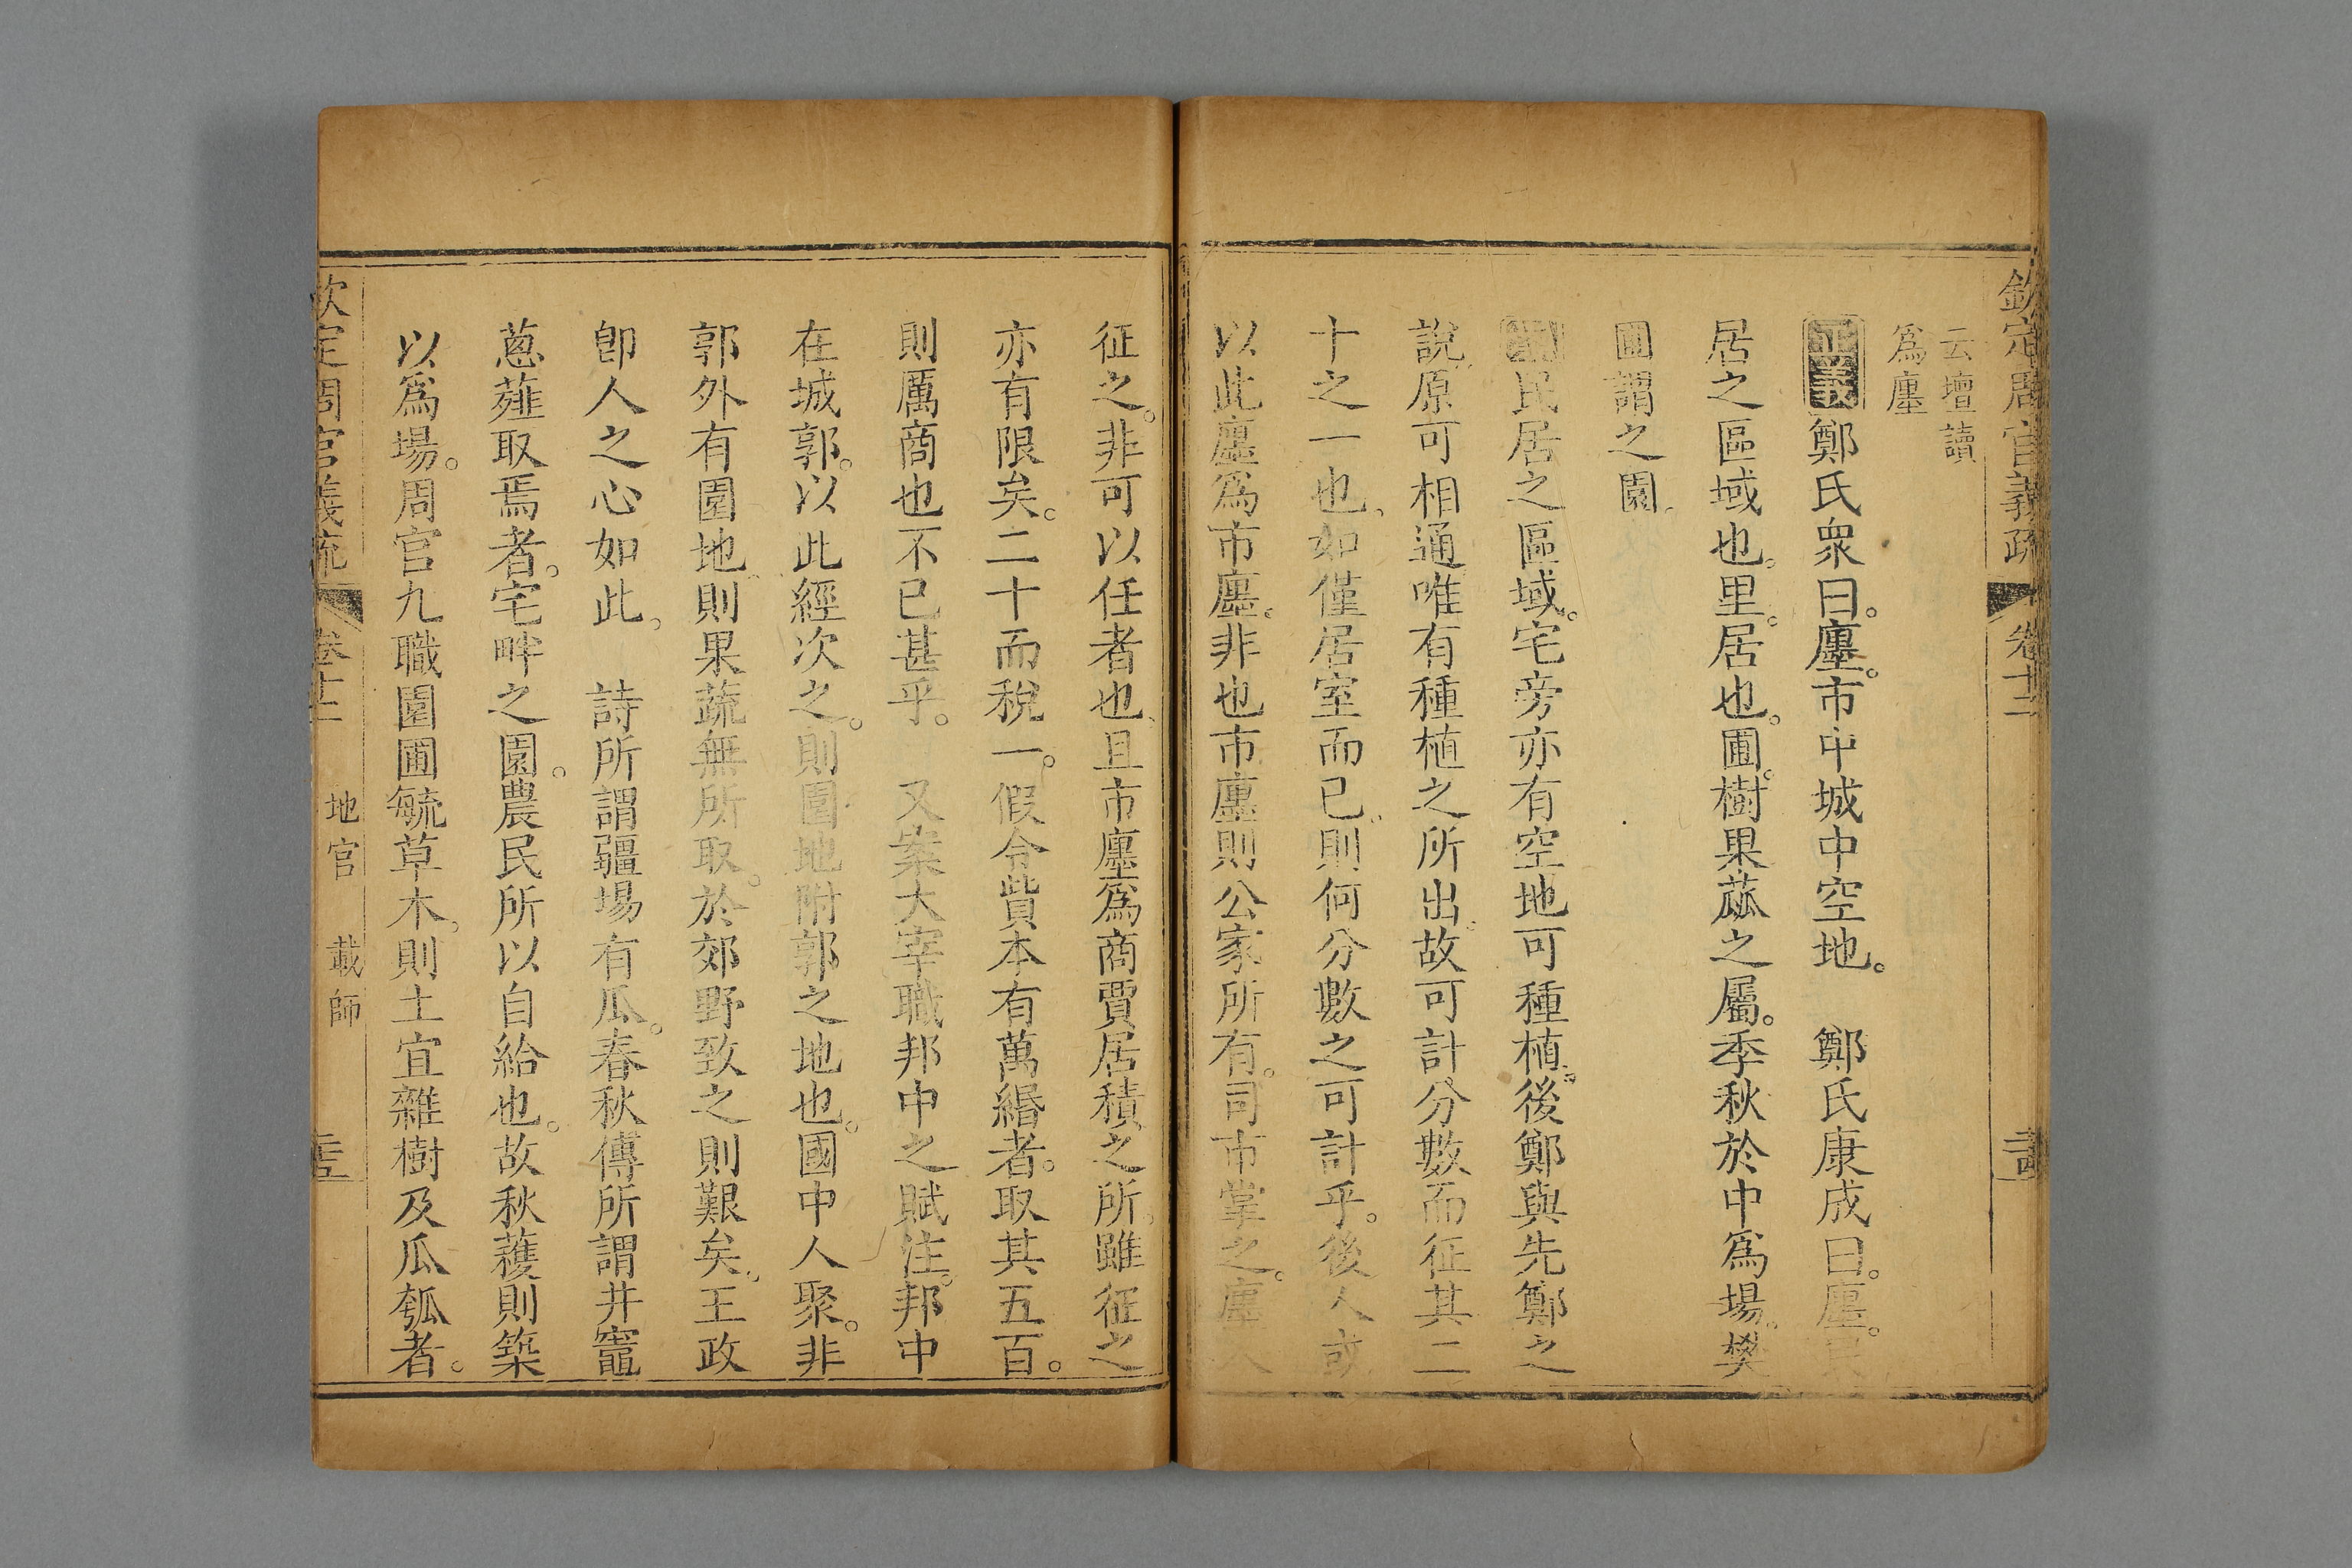 欽定周官義疏 卷十二
云壇讀
爲廛
正義鄭氏衆曰。廛。市中城中空地。 鄭氏康成曰。廛。民
居之區域也。里。居也。圃。樹果蓏之屬。季秋於中爲場。樊
圃謂之園。
民居之區域。宅旁亦有空地可種植。後鄭與先鄭之
說。原可相通。唯有種植之所出。故可計分數而征其二
十之一也。如僅居室而已。則何分數之可計乎。後人或
以此廛爲市廛。非也。市廛則公家所有。司市掌之。廛人
征之。非可以任者也。且市廛爲商賈居積之所。雖征之
亦有限矣。二十而稅一。假令貲本有萬緡者。取其五百。
則厲商也不已甚乎。 又案大宰職邦中之賦注。邦中
在城郭。以此經次之。則園地附郭之地也。國中人聚。非
郭外有園地。則果蔬無所取。於郊野致之則艱矣。王政
卽人之心如此。 詩所謂疆場有瓜。春秋傳所謂井竈
蔥薤取焉者。宅畔之園。農民所以自給也。故秋穫則築
以爲場。周官九職園圃毓草木。則土宜雜樹及瓜瓠者。
欽定周官義疏 卷十二 地官 載師